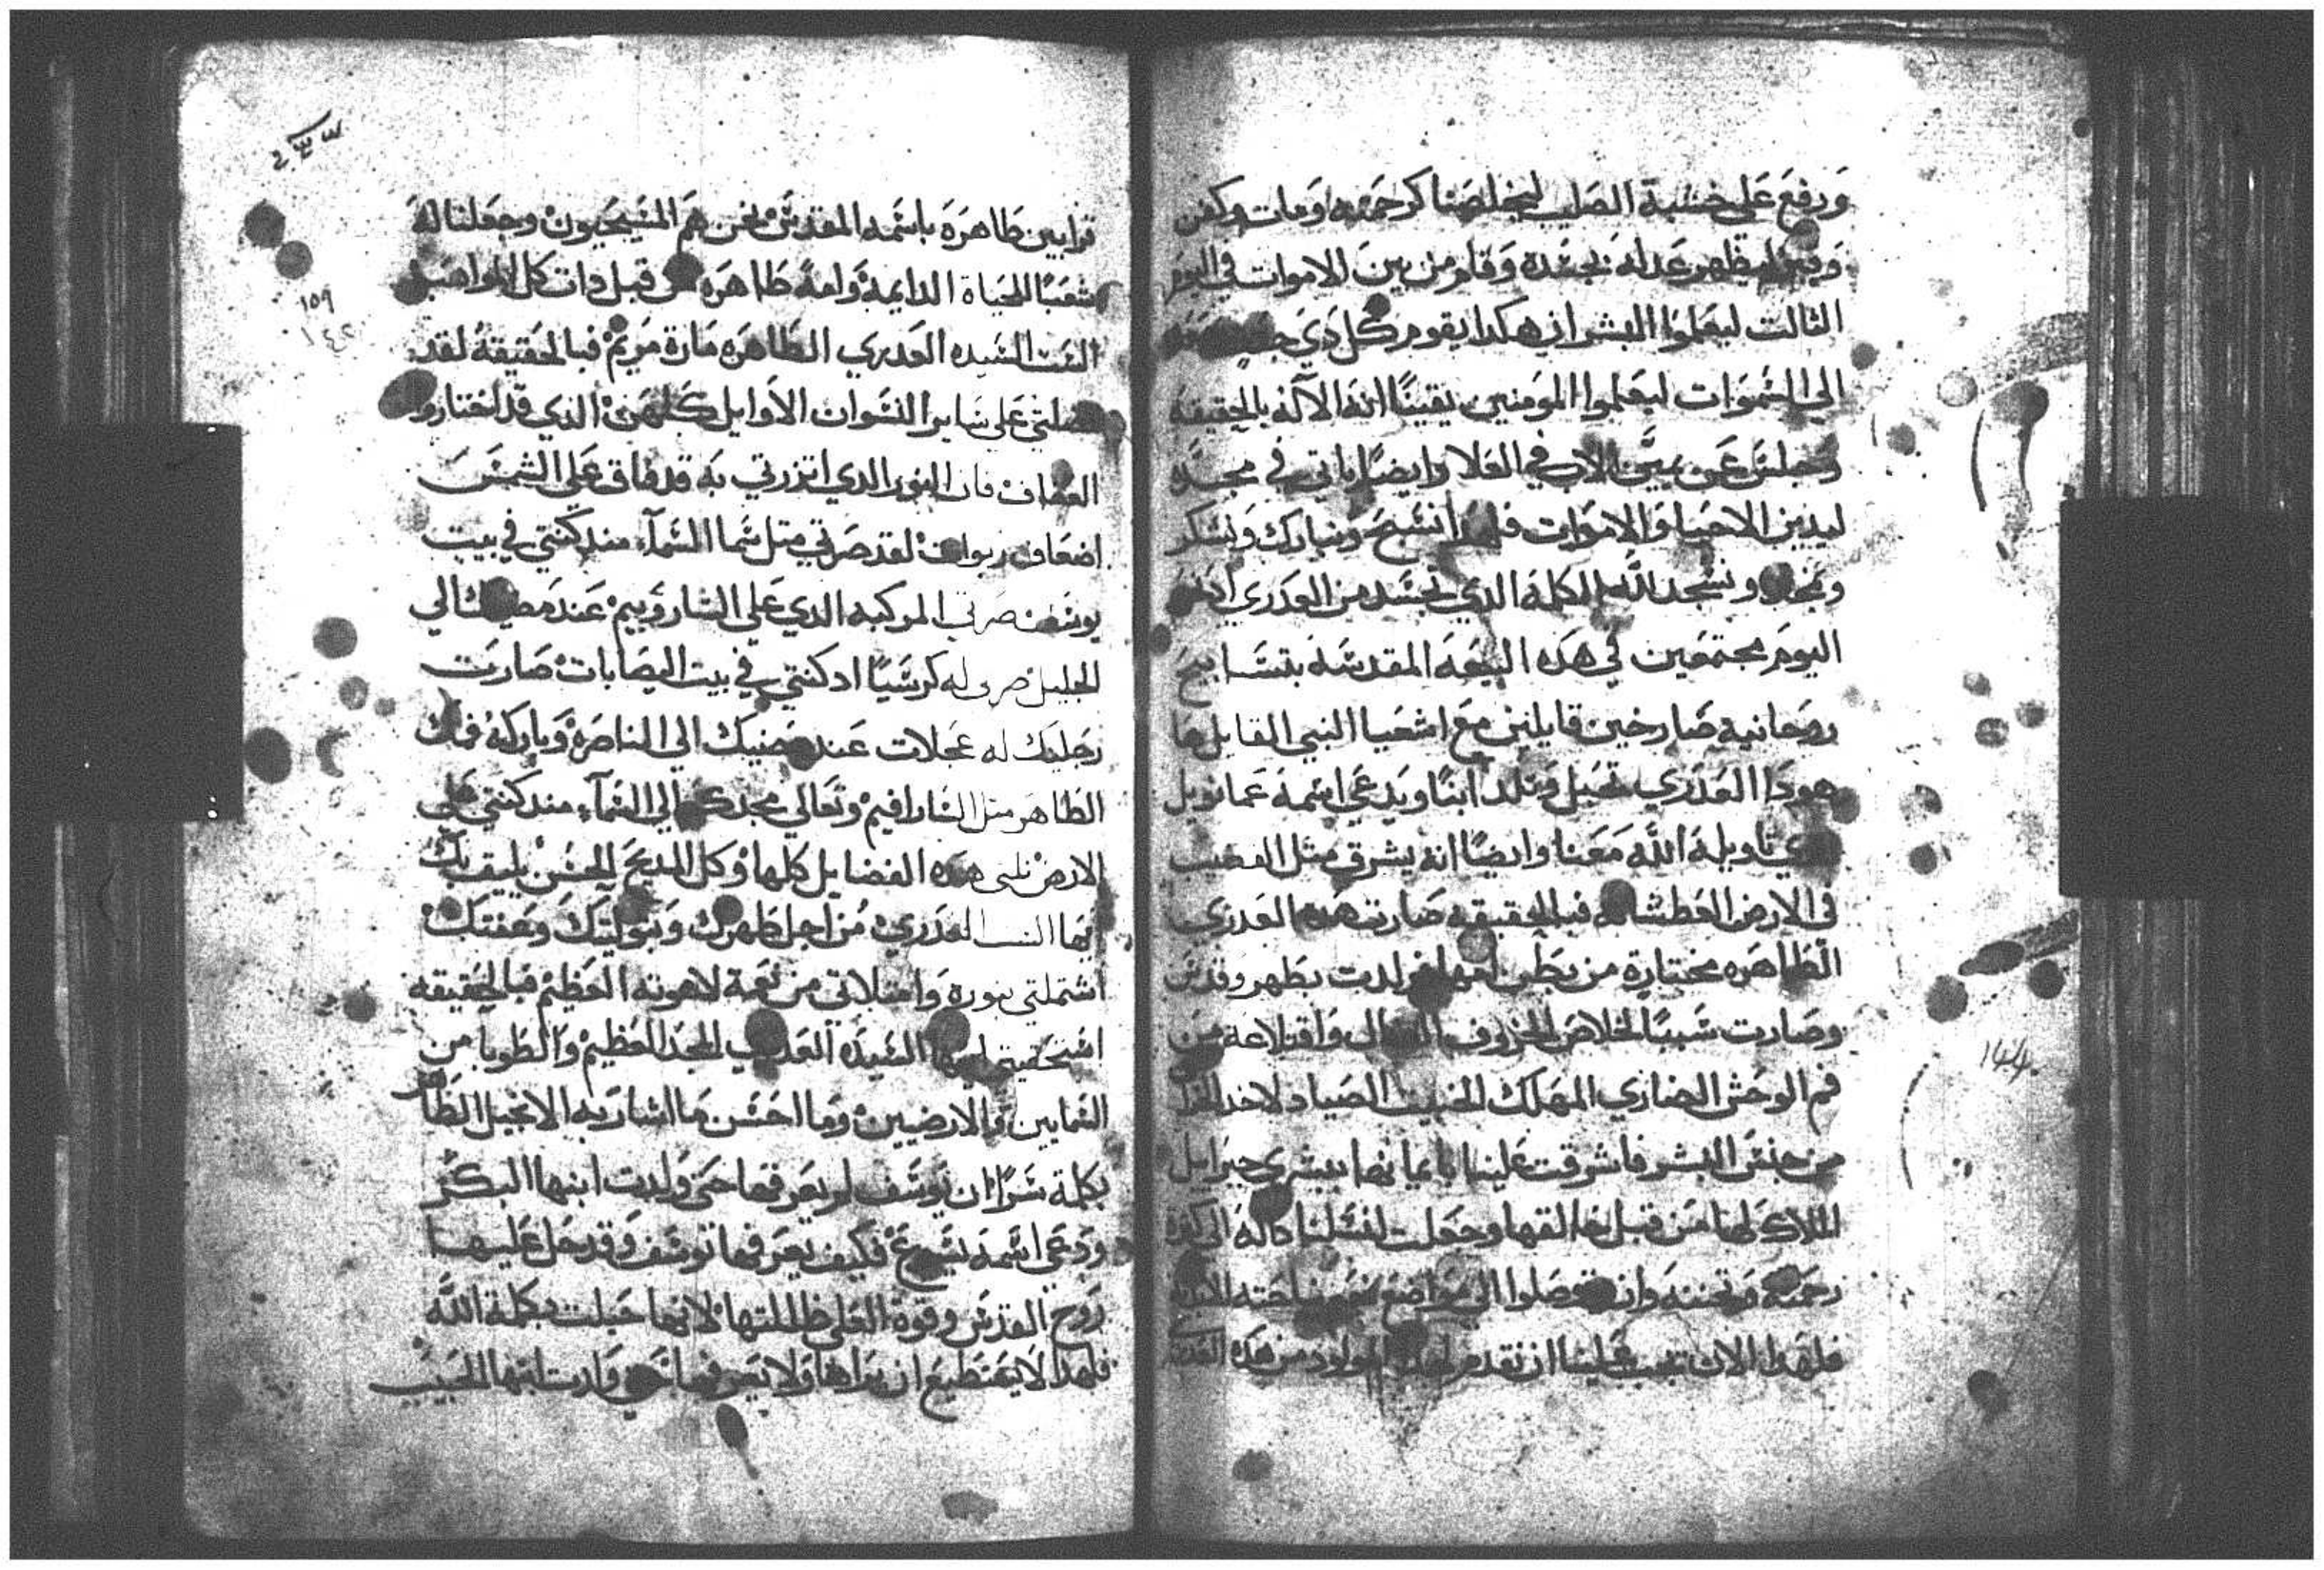 ورفع على خشبة الصليب ليخلصنا كرحمته ومات وكفن
وقبر ليظهر عدله بجسده وقام من بين الاموات في اليوم
الثالت ليعلموا البشر ان هكدا يقوم كل دي
الي السموات ليعلموا المومنين يقينًا انه الآله بالحقيقة
وجلس عن يمين الاب في العلا وايضًا ياتي في مجده
ليدين الاحيا والاموات فلهدا نسبح ونبارك ونشكر
ونمجد ونسجد لله الكلمة الدي تجسد من العدري
اليوم مجتمعين في هده البيعه المقدسه بتسابيح
روحانية صارخين قايلين مع اشعيا النبي القايل ها
هودا العدري تحبل وتلد ابنًا ويدعي اسمه عمانويل
الدي تاويله الله معنا وايضًا انه يشرق متل القضيب
في الارض العطشانه فبالحقيقه صارت هده العدري
الطاهره مختارة من بطن امها ولدت بطهر وقدس
وصارت سببًا لخلاص الخروف الضال واقتلاعه من
فم الوحش الضاري المهلك الخبيث الصياد
من جنس البشر فاشرقت علينا بايمانها ببشري جبرايل
الملاك لها من قبل خالقها وجعلت لنسلنا داله الي كثرة
رحمته وتحننه وان توصلوا الي مواضع
فلهدا الان يجب علينا ان نقدم لهدا المولود من هده
س
١٥٩
١٤٢
قرابين طاهره باسمه المقدس نحن هم المسيحيون وجعلنا له
شعبًا للحياة الدايمة وامة طاهره من قبل دات كل المواهب
الست السيده العدري الطاهره مارة مريم فبالحقيقة لقد
فضلتي علي ساير النسوان الاوايل كلهن الدي قد اختارو
العفاف فان النور الدي اتزرتي به قد فاق علي الشمس
اضعاف ربوات لقد صرتي متل سما السمآء مند كنتي في بيت
يوسف صرتي المركبه الدي علي الشاروبيم عند مضيك الي
الجليل صرتي له كرسيًا اد كنتي في بيت اليصابات صارت
رجليك له عجلات عند مضيك الي الناصرة وباركة فمك
الطاهر متل السارافيم وتعالي مجدك الي السمآء مند كنتي علي
الارض نلتي هده الفضايل كلها وكل المديح الحسن يليق بك
ايها الست العدري من اجل طهرك وبتوليتك وعفتك
اشتملتي بنوره وامتلاتي من نعمة لاهوته العظيم فبالحقيقه
استحقيتي ايها السيده العدري المجد العظيم والطوبا من
السمايين والارضيين وما احسن ما اشار به الانجيل الطاهر
بكلمة سرًا ان يوسف لم يعرفها حتى ولدت ابنها البكر
ودعي اسمه يسوع فكيف يعرفها يوسف وقد حل عليها
روح القدس وقوة العلي ظللتها لانها حبلت بكلمة الله
فلهدا لا يستطيع ان يراها ولا يعرفها حتي ولدت ابنها الحبيب